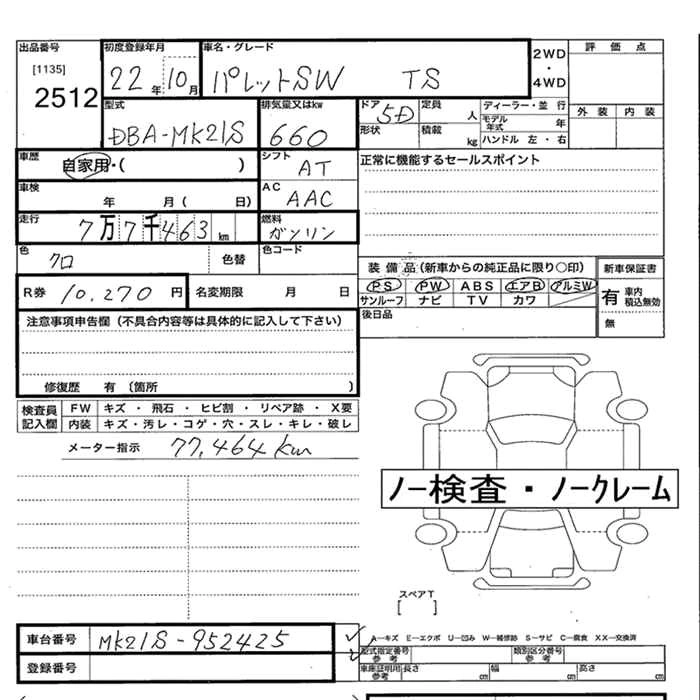 出品番号 初度登録年月 車名・グレード 評価点
[1135] 22年10月 パレットSW TS 2WD・4WD
2512 外装 内装
型式 排気量又はkw ドア 5D 定員 人 ディーラー・並行
DBA-MK21S 660 形状 積載 kg モデル年式 年
ハンドル 左・右
車歴 自家用・( ) シフト AT 正常に機能するセールスポイント
車検 年 月( 日) AC AAC
走行 7万7千463km 燃料 ガソリン
色 クロ 色替 色コード
装備品(新車からの純正品に限り○印) 新車保証書
R券 10,270円 名変期限 月 日 PS PW ABS エアB アルミW 有 車内積込無効
サンルーフ ナビ TV カワ
注意事項申告欄(不具合内容等は具体的に記入して下さい) 後日品 無
修復歴 有(箇所 )
検査員記入欄 FW キズ・飛石・ヒビ割・リペア跡・X要
内装 キズ・汚レ・コゲ・穴・スレ・キレ・破レ
メーター指示 77,464km
ノー検査・ノークレーム
スペアT
[ ]
車台番号 MK21S-952425 A―キズ E―エクボ U―凹み W―補修跡 S―サビ C―腐食 XX―交換済
型式指定番号 参考 類別区分番号 参考
登録番号 車庫証明用参考 長さ cm 幅 cm 高さ cm